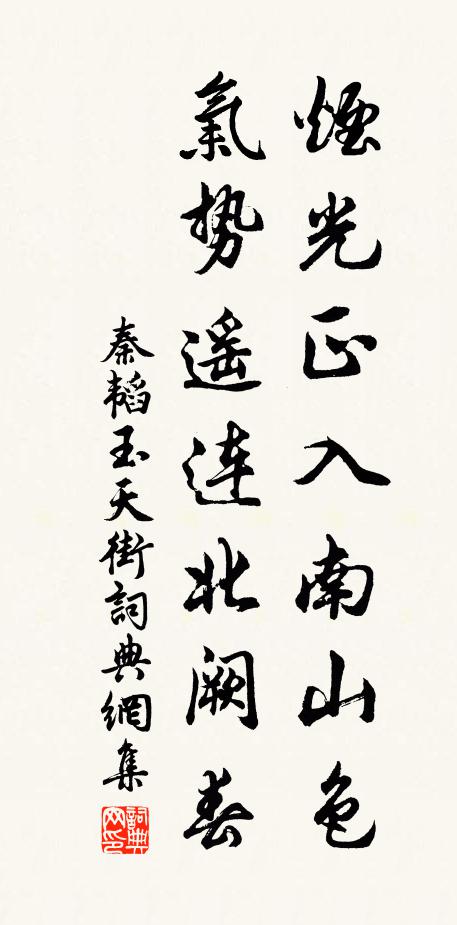 煙光正入南山色
氣勢遥連北阙春
秦韬玉天街詞典網集
詞典网印